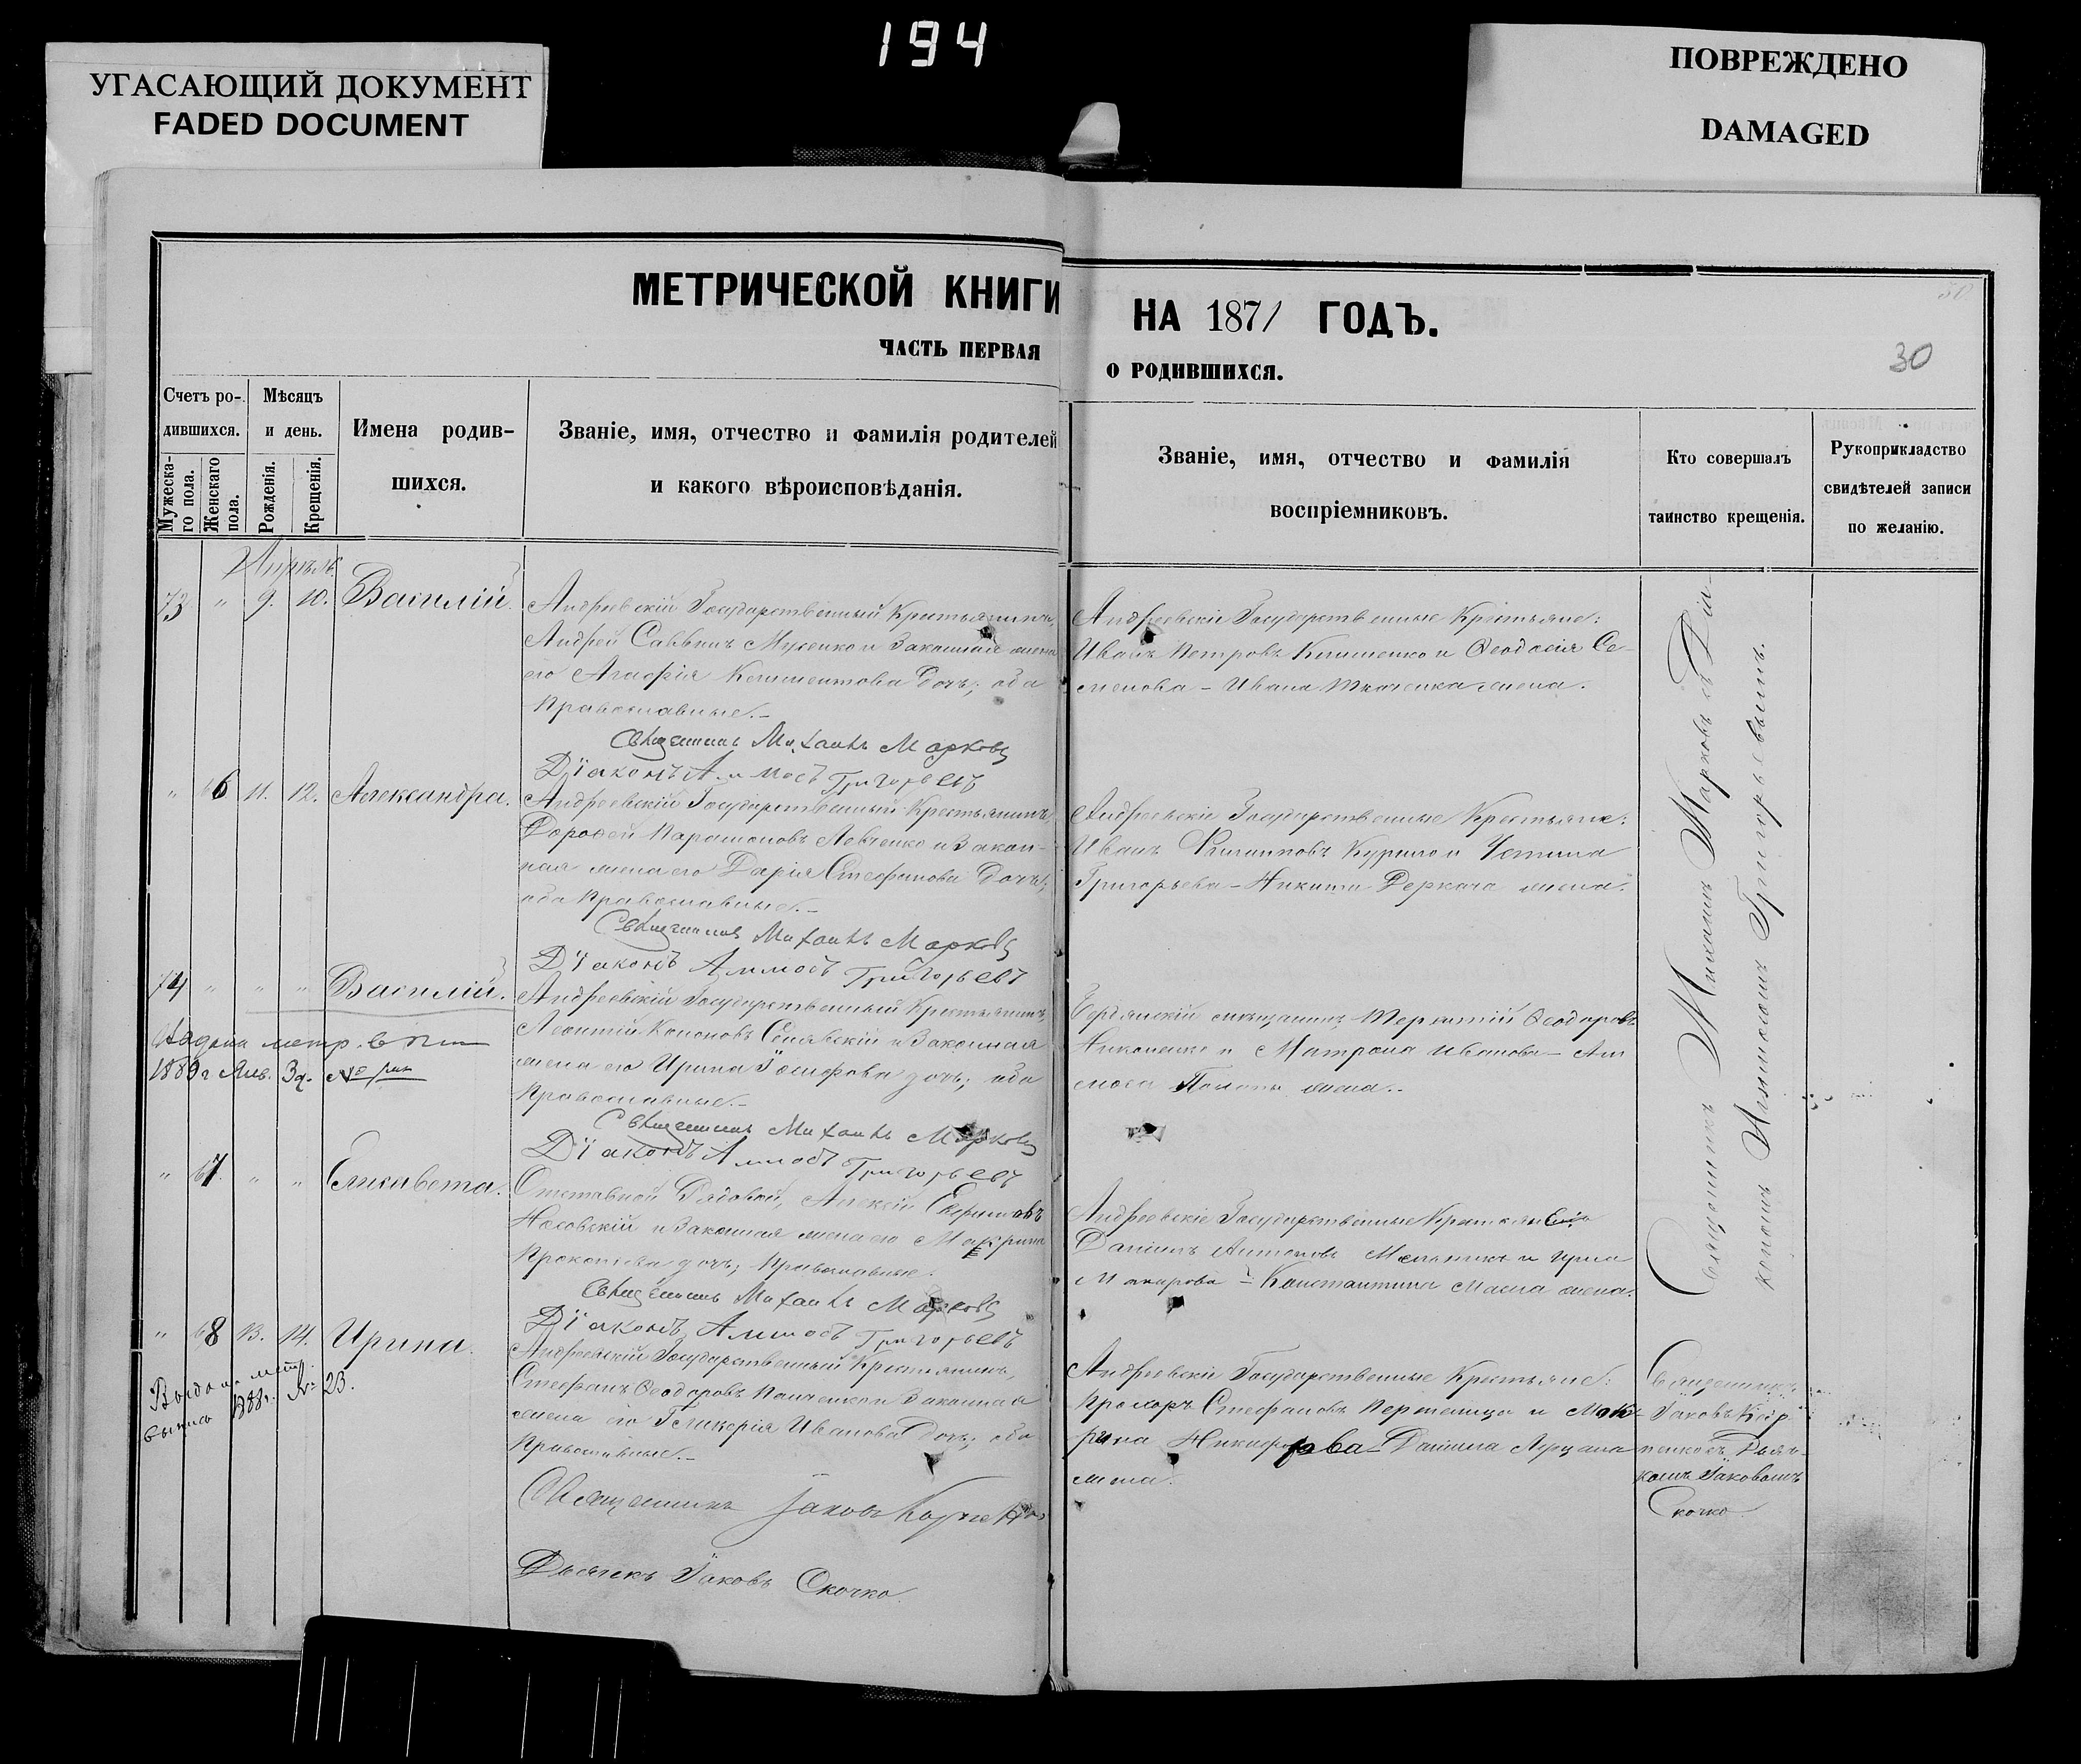 194
УГАСАЮЩИЙ ДОКУМЕНТ
FADED DOCUMENT
ПОВРЕЖДЕНО
DAMAGED
МЕТРИЧЕСКОЙ КНИГИ НА 1871 ГОДЪ.
ЧАСТЬ ПЕРВАЯ О РОДИВШИХСЯ.
30
Счетъ ро-
дившихся.
Мужеска-
го пола.
Женскаго
пола.
Мѣсяцъ
и день.
Рожденія.
Крещенія.
Имена родив-
шихся.
Званіе, имя, отчество и фамилія родителей
и какого вѣроисповѣданія.
Званіе, имя, отчество и фамилія
воспріемниковъ.
Кто совершалъ
таинство крещенія.
Рукоприкладство
свидѣтелей записи
по желанію.
Апрѣль
73 " 9. 10. Василій.
Андреевскій Государственный Крестьянинъ,
Андрей Саввинъ Мусенко и законная жена
его Агафія Климентова дочь; оба
православные.-
Священникъ Михаилъ Марковъ
Діаконъ Аммосъ Григорьевъ
Андреевскіе Государственные Крестьяне:
Иванъ Петровъ Клименко и Ѳеодосія Се-
менова - Ивана Ткаченка жена.
" 66 11. 12. Александра.
Андреевскій Государственный Крестьянинъ,
Дороѳей Парамоновъ Левченко и закон-
ная жена его Дарія Стефанова дочь;
оба православные.-
Священникъ Михаилъ Марковъ
Діаконъ Аммосъ Григорьевъ
Андреевскіе Государственные Крестьяне:
Иванъ Филиповъ Курило и Устина
Григорьева - Никиты Деркача жена.
74 " " " Василій.
Андреевскій Государственный Крестьянинъ,
Леонтій Кононовъ Сенявскій и законная
жена его Ирина Іосифова дочь; оба
православные.-
Священникъ Михаилъ Марковъ
Діаконъ Аммосъ Григорьевъ
метр.
1889 г Янв. 3 д. №
Бердянскій мѣщанинъ Терентій Ѳеодоровъ
Николенко и Матрона Иванова - Ам
моса жена.-
" 67. " " Елисавета.
Отставной Рядовой, Алексѣй Ефремовъ
Носовскій и законная жена его Макрина
Прокопіева дочь; православные.
Священникъ Михаилъ Марковъ
Діаконъ Аммосъ Григорьевъ
Андреевскіе Государственные Крестьяне
Даніилъ Антоновъ Мельникъ и Ирина
Макарова - Константина жена.
" 68 13. 14. Ирина.
Андреевскій Государственный Крестьянинъ,
Стефанъ Ѳеодоровъ Панченко и законная
жена его Гликерія Иванова дочь; оба
православные.-
Священникъ Іаковъ
Дьячекъ Іаковъ Скочко.
метр.
выпись 1888 г. № 23.
Андреевскіе Государственные Крестьяне:
Прохоръ Стефановъ и Мак-
рина Никифорова - Даніила
жена.
Священникъ Михаилъ Марковъ съ Діа-
кономъ Аммосомъ Григорьевымъ.
Священникъ
Іаковъ
съ Дьяч-
комъ Іаковомъ
Скочко